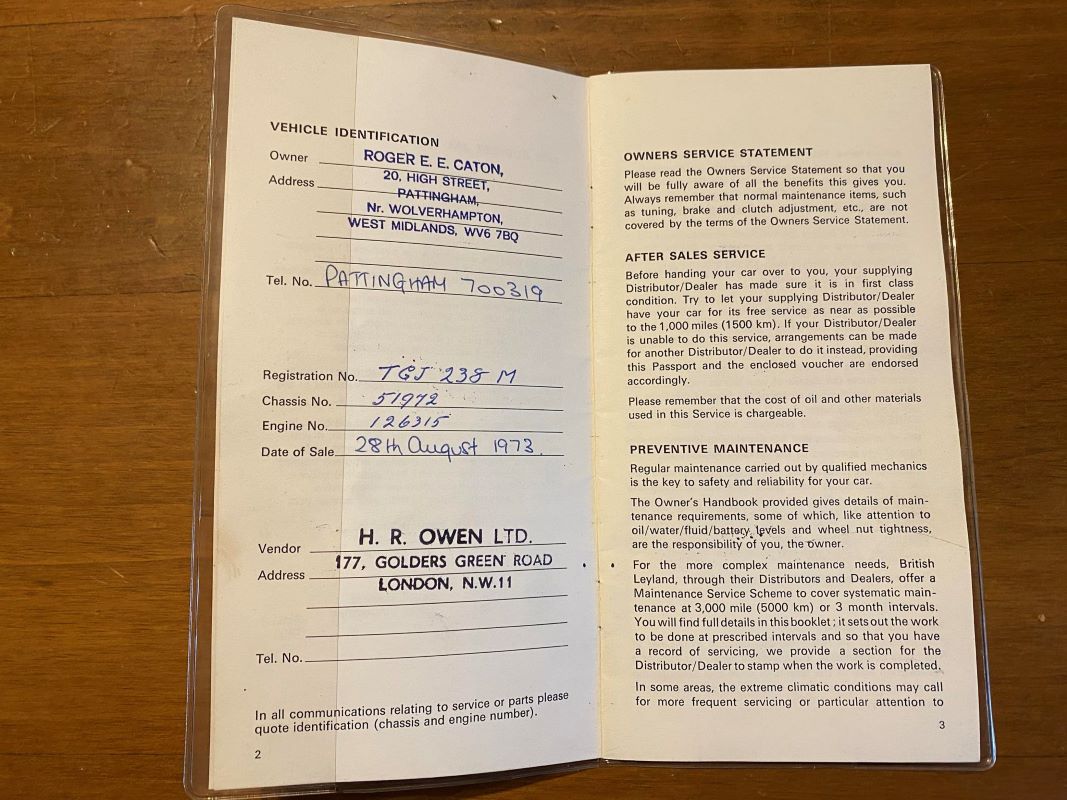 VEHICLE IDENTIFICATION
Owner ROGER E. E. CATON,
Address 20, HIGH STREET,
PATTINGHAM,
Nr. WOLVERHAMPTON,
WEST MIDLANDS, WV6 7BQ
Tel. No. PATTINGHAM 700319
Registration No. TGJ 238 M
Chassis No. 51972
Engine No. 126315
Date of Sale 28th August 1973.
Vendor H. R. OWEN LTD.
Address 177, GOLDERS GREEN ROAD
LONDON, N.W.11
Tel. No.
In all communications relating to service or parts please
quote identification (chassis and engine number).
2
OWNERS SERVICE STATEMENT
Please read the Owners Service Statement so that you
will be fully aware of all the benefits this gives you.
Always remember that normal maintenance items, such
as tuning, brake and clutch adjustment, etc., are not
covered by the terms of the Owners Service Statement.
AFTER SALES SERVICE
Before handing your car over to you, your supplying
Distributor/Dealer has made sure it is in first class
condition. Try to let your supplying Distributor/Dealer
have your car for its free service as near as possible
to the 1,000 miles (1500 km). If your Distributor/Dealer
is unable to do this service, arrangements can be made
for another Distributor/Dealer to do it instead, providing
this Passport and the enclosed voucher are endorsed
accordingly.
Please remember that the cost of oil and other materials
used in this Service is chargeable.
PREVENTIVE MAINTENANCE
Regular maintenance carried out by qualified mechanics
is the key to safety and reliability for your car.
The Owner's Handbook provided gives details of main-
tenance requirements, some of which, like attention to
oil/water/fluid/battery levels and wheel nut tightness,
are the responsibility of you, the owner.
For the more complex maintenance needs, British
Leyland, through their Distributors and Dealers, offer a
Maintenance Service Scheme to cover systematic main-
tenance at 3,000 mile (5000 km) or 3 month intervals.
You will find full details in this booklet; it sets out the work
to be done at prescribed intervals and so that you have
a record of servicing, we provide a section for the
Distributor/Dealer to stamp when the work is completed.
In some areas, the extreme climatic conditions may call
for more frequent servicing or particular attention to
3